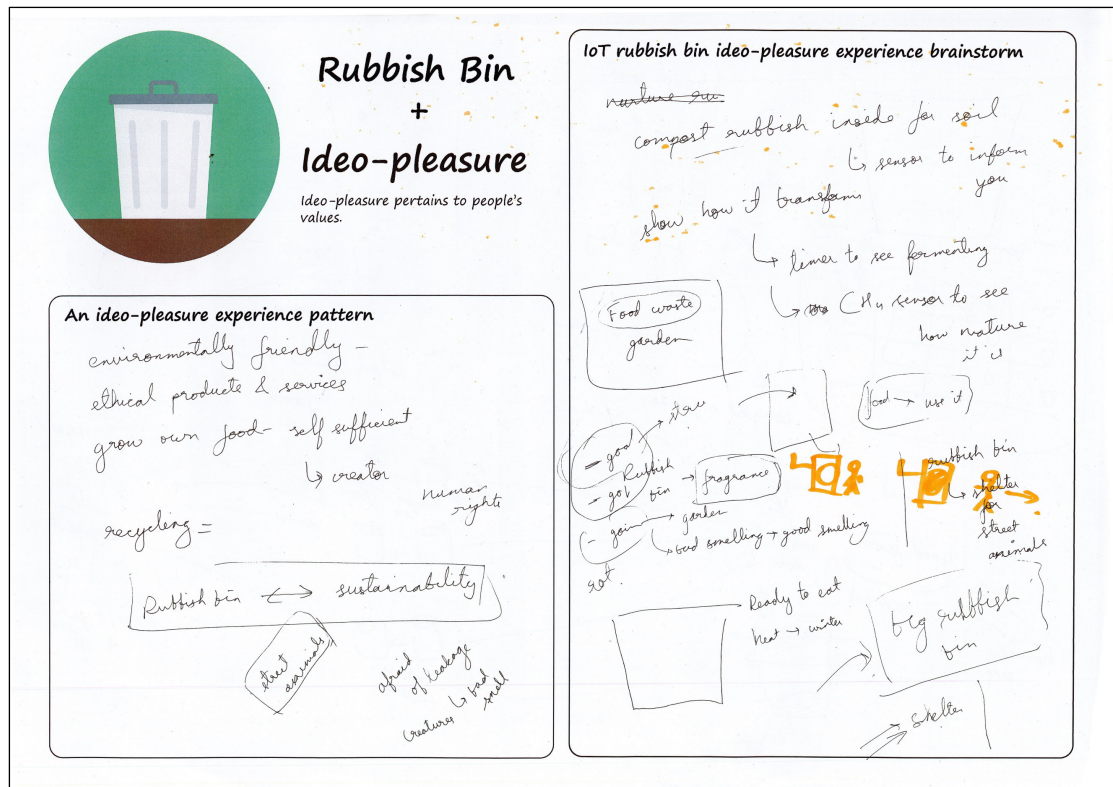 Rubbish Bin
+
Ideo-pleasure
Ideo-pleasure pertains to people's
values.
An ideo-pleasure experience pattern
environmentally friendly -
ethical products & services
grow own food - self sufficient
↳ creator
human
rights
recycling =
Rubbish bin ↔ sustainability
street
animals
afraid
of leakage
↳ bad
smell
creatures
IoT rubbish bin ideo-pleasure experience brainstorm
compost rubbish inside for soil
↳ sensor to inform
you
show how it transform
↳ timer to see fermenting
↳ CH4 sensor to see
how mature
it is
Food waste
garden
food → use it
- good → store
Rubbish
bin → fragrance
- goi
- goin → garden
↳ bad smelling → good smelling
rot.
rubbish bin
↳ shelter
for
street
animals
Ready to eat
heat → winter
big rubbish
bin
→ shelter